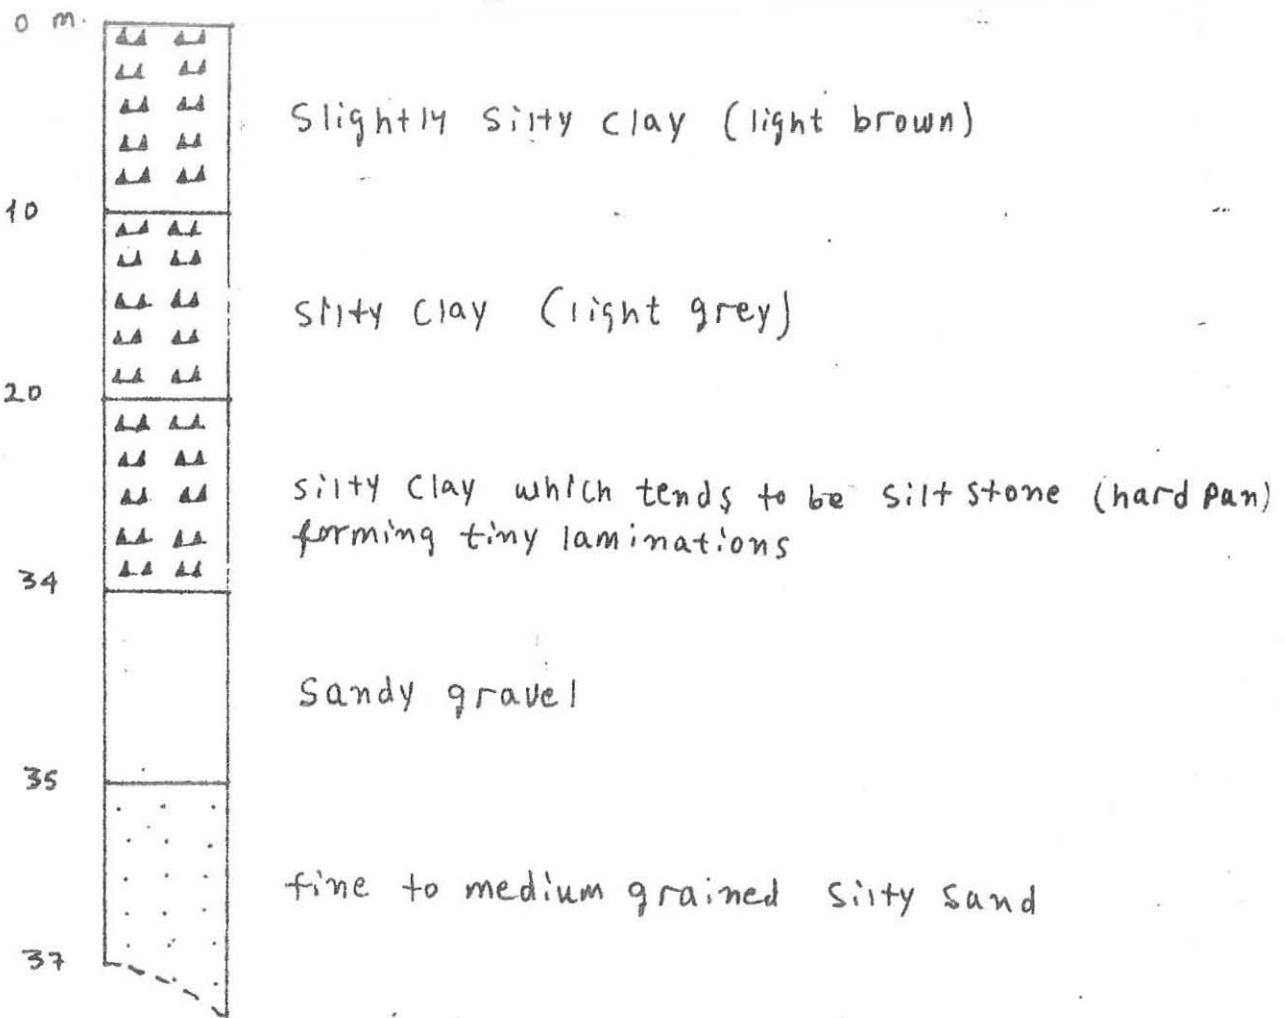 0 m.
Slightly silty clay (light brown)
10
silty clay (light grey)
20
silty clay which tends to be silt stone (hard pan)
forming tiny laminations
34
Sandy gravel
35
fine to medium grained silty sand
37